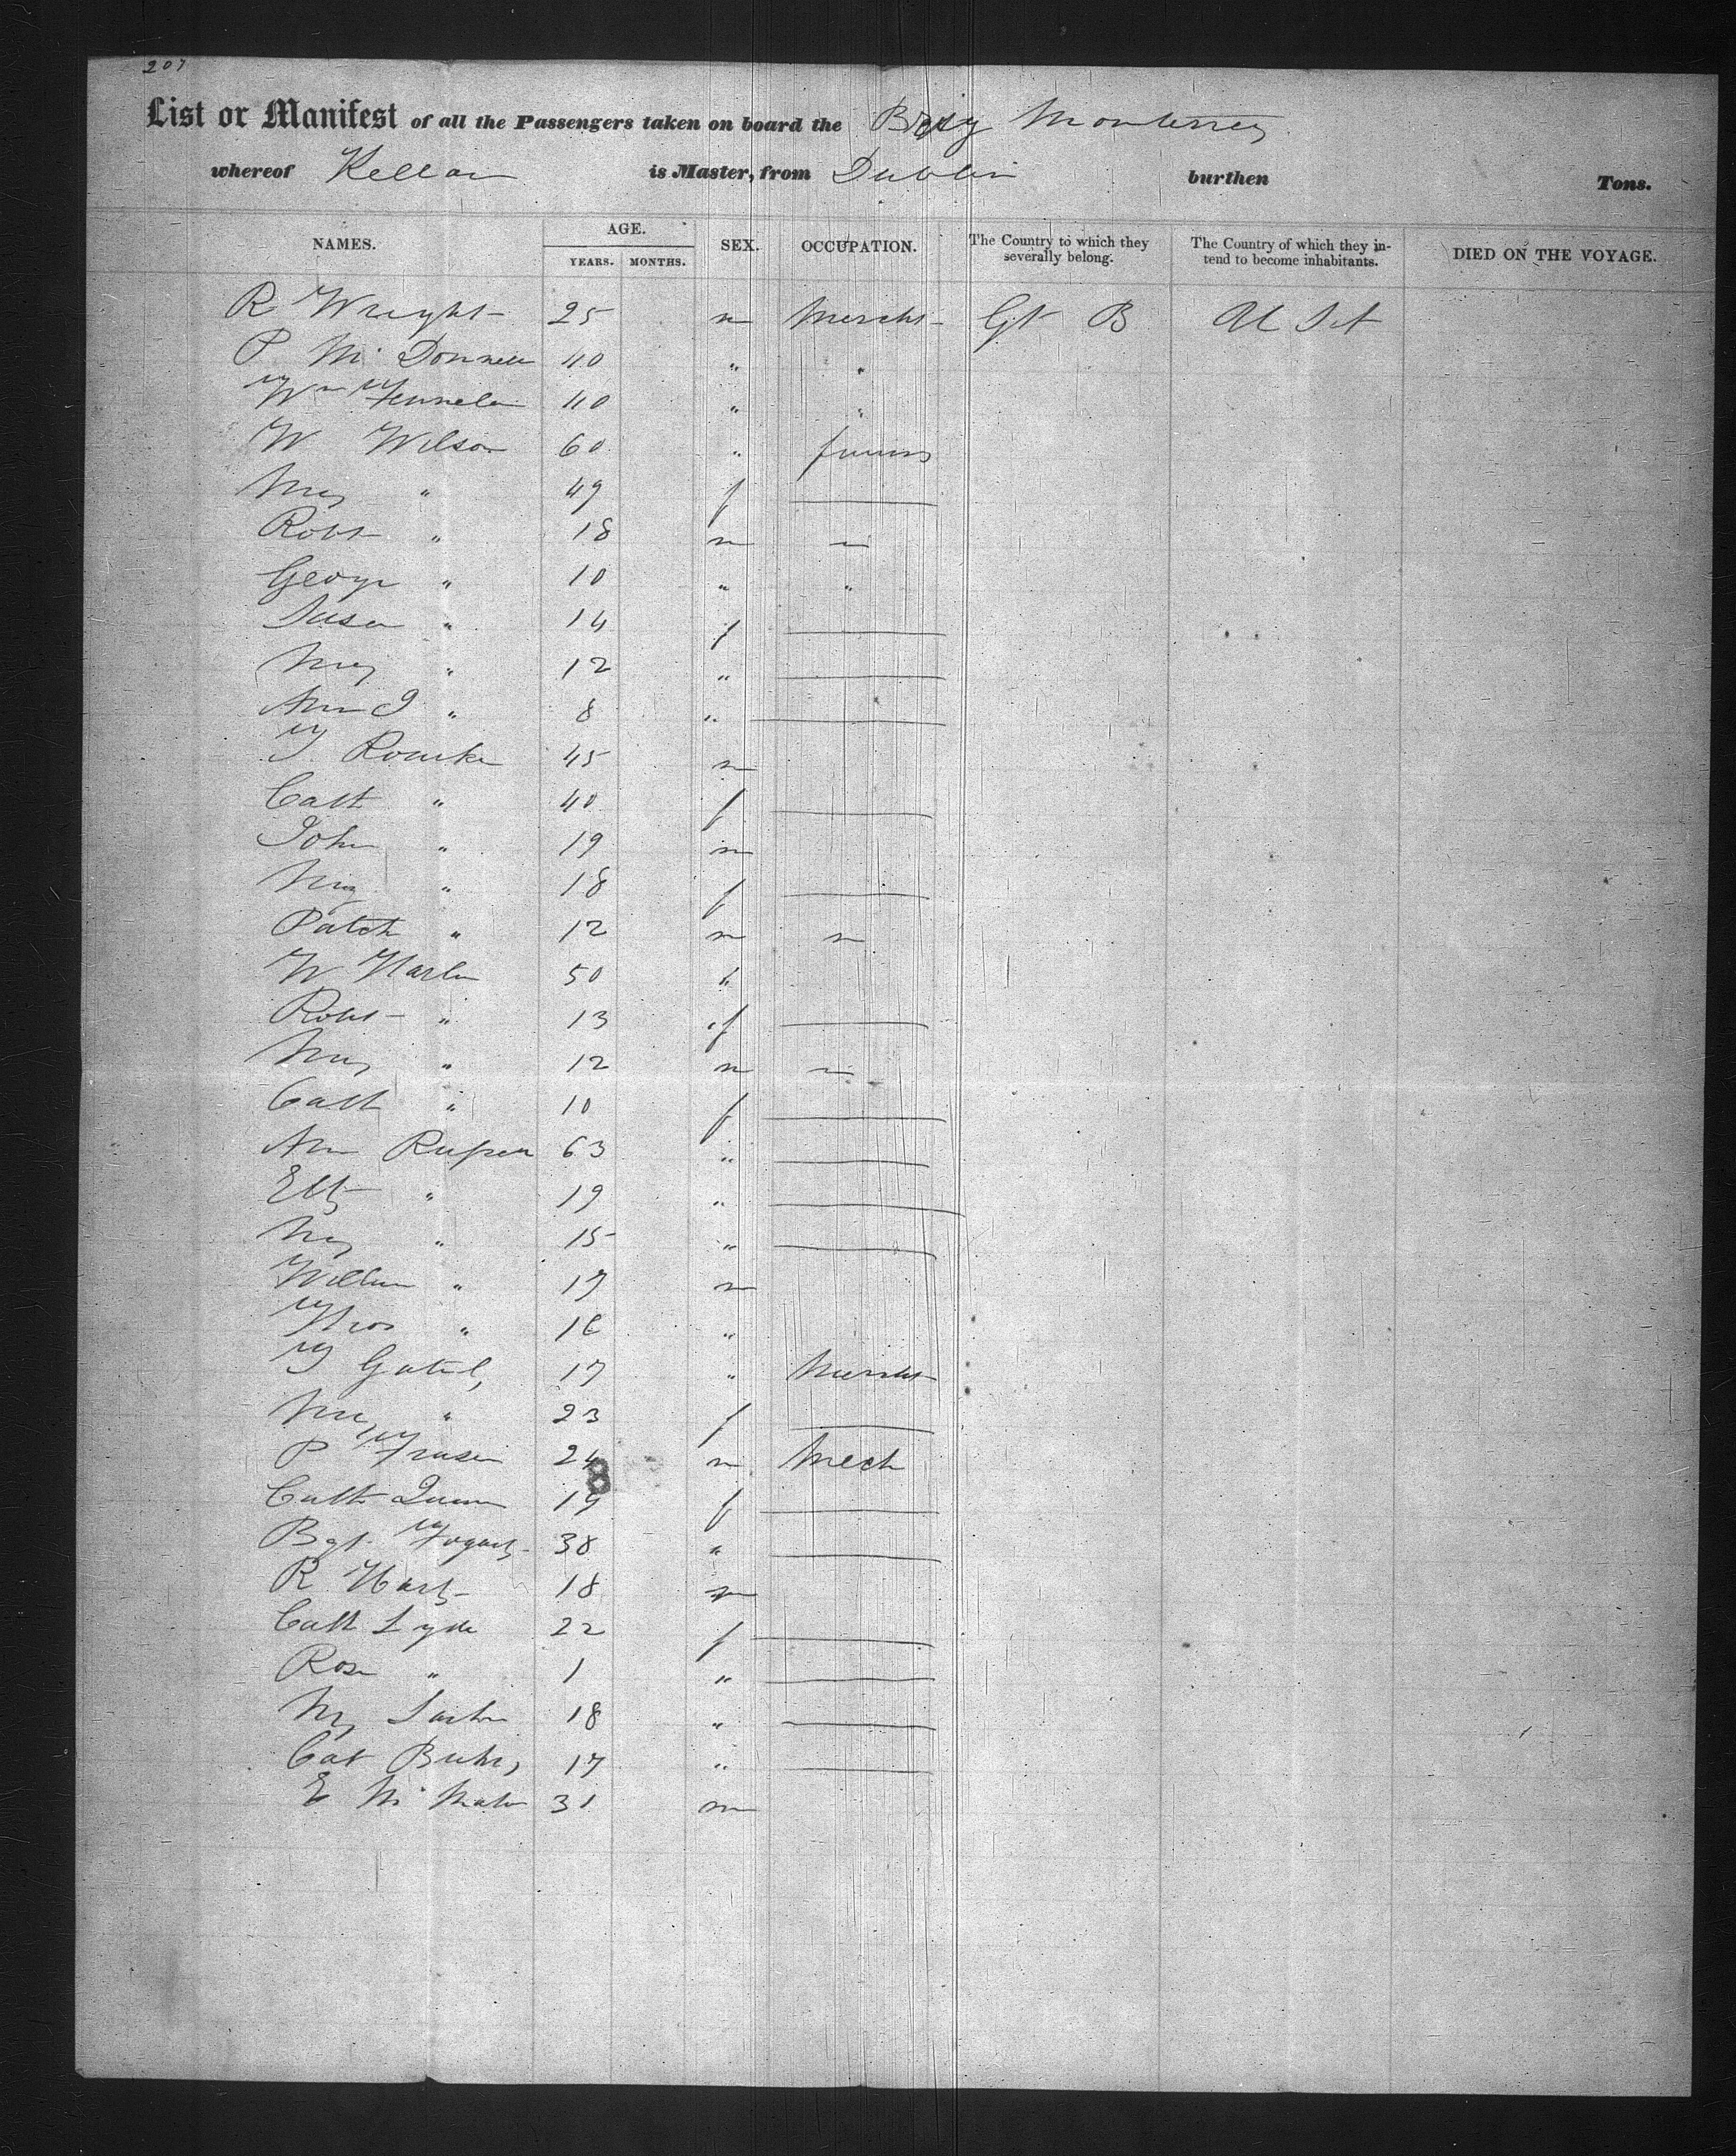 207
List or Manifest of all the Passengers taken on board the Monterrey
whereof Kellar is Master, from Dublin burthen Tons.
NAMES. AGE. YEARS. MONTHS. SEX. OCCUPATION. The Country to which they severally belong. The Country of which they intend to become inhabitants. DIED ON THE VOYAGE.
R Wright 25 m Mercht Gt B U St
P Mc Donnell 40 " "
Wm 40 " "
W Wilson 60 "
Mary " 49 f
Robt " 18 m
George " 10 " "
Susan " 14 f
Mary " 12 "
Ann J " 8 "
T. Rourke 45 m
Cath " 40 f
John " 19 m
Mary " 18 f
Patck " 12 m
W 50 "
Robt " 13 f
Mary " 12 m
Cath " 10 f
Ann 63 "
Eliz " 19 "
Mary " 15 "
William " 17 m
Thos " 16 "
T 17 " Mercht
Mary " 23 f
P Fraser 24 m Mech
8
Cath Quinn 19 f
Bgt. Fogarty 38 "
R 18 m
Cath 22 f
Rose " 1 "
My 18 "
Cat 17 "
E Mc 31 m